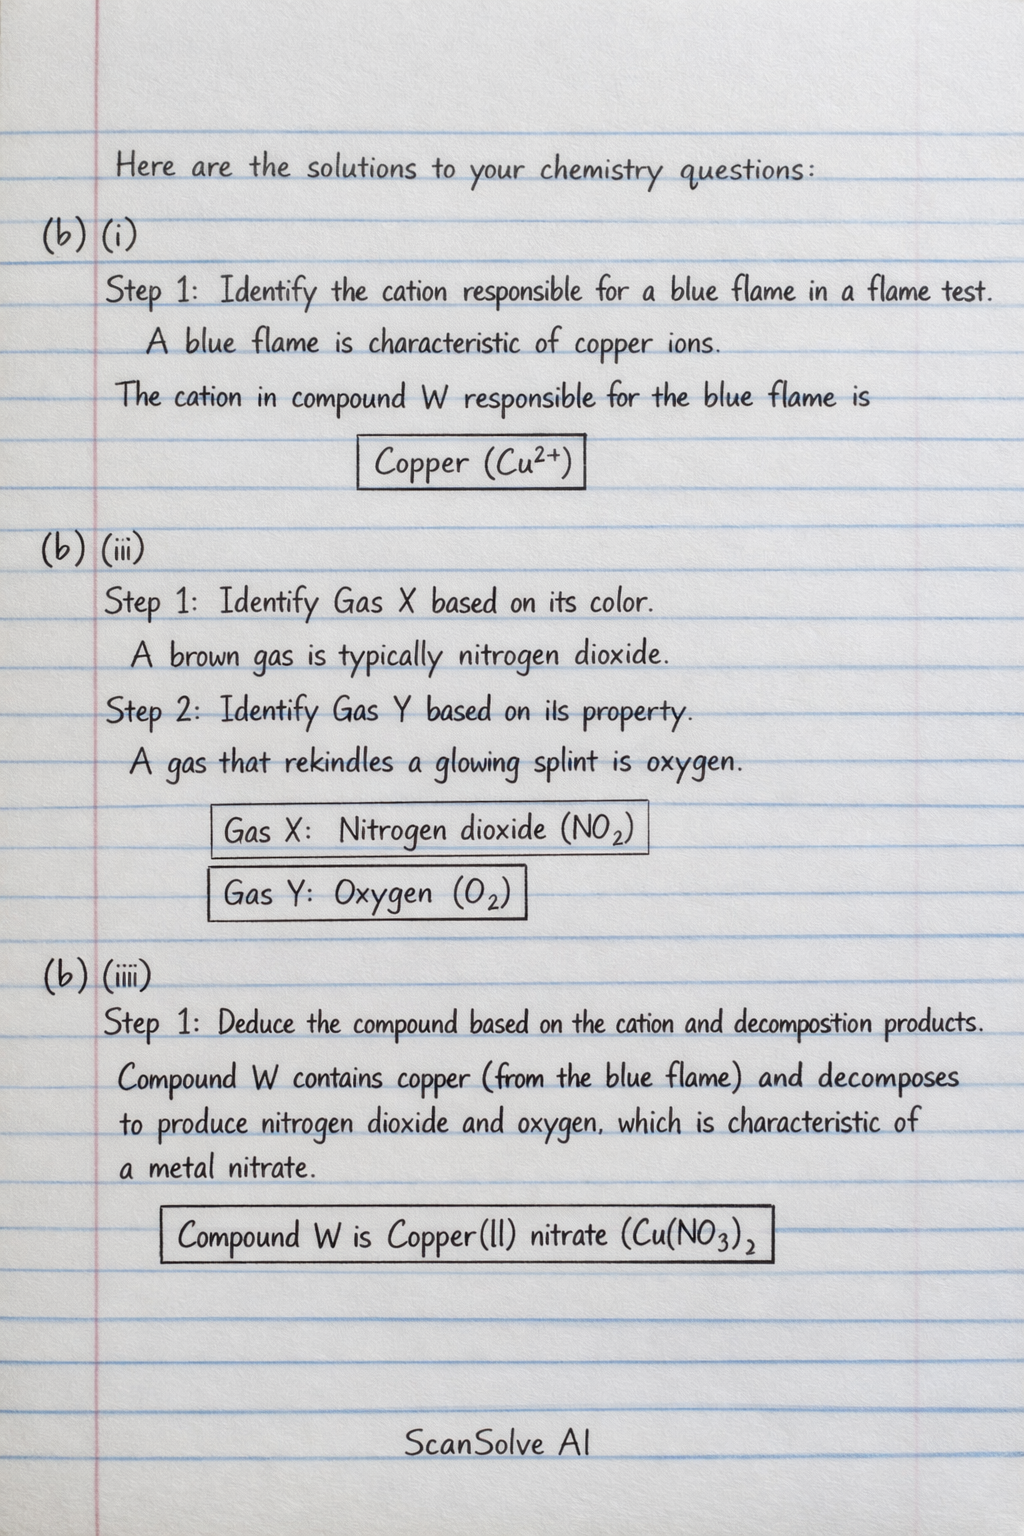 Here are the solutions to your chemistry questions:
(b) (i)
Step 1: Identify the cation responsible for a blue flame in a flame test.
A blue flame is characteristic of copper ions.
The cation in compound W responsible for the blue flame is
Copper (Cu²⁺)
(b) (iii)
Step 1: Identify Gas X based on its color.
A brown gas is typically nitrogen dioxide.
Step 2: Identify Gas Y based on ils property.
A gas that rekindles a glowing splint is oxygen.
Gas X: Nitrogen dioxide (NO₂)
Gas Y: Oxygen (O₂)
(b) (iiii)
Step 1: Deduce the compound based on the cation and decompostion products.
Compound W contains copper (from the blue flame) and decomposes
to produce nitrogen dioxide and oxygen, which is characteristic of
a metal nitrate.
Compound W is Copper(ll) nitrate (Cu(NO₃)₂
ScanSolve AI